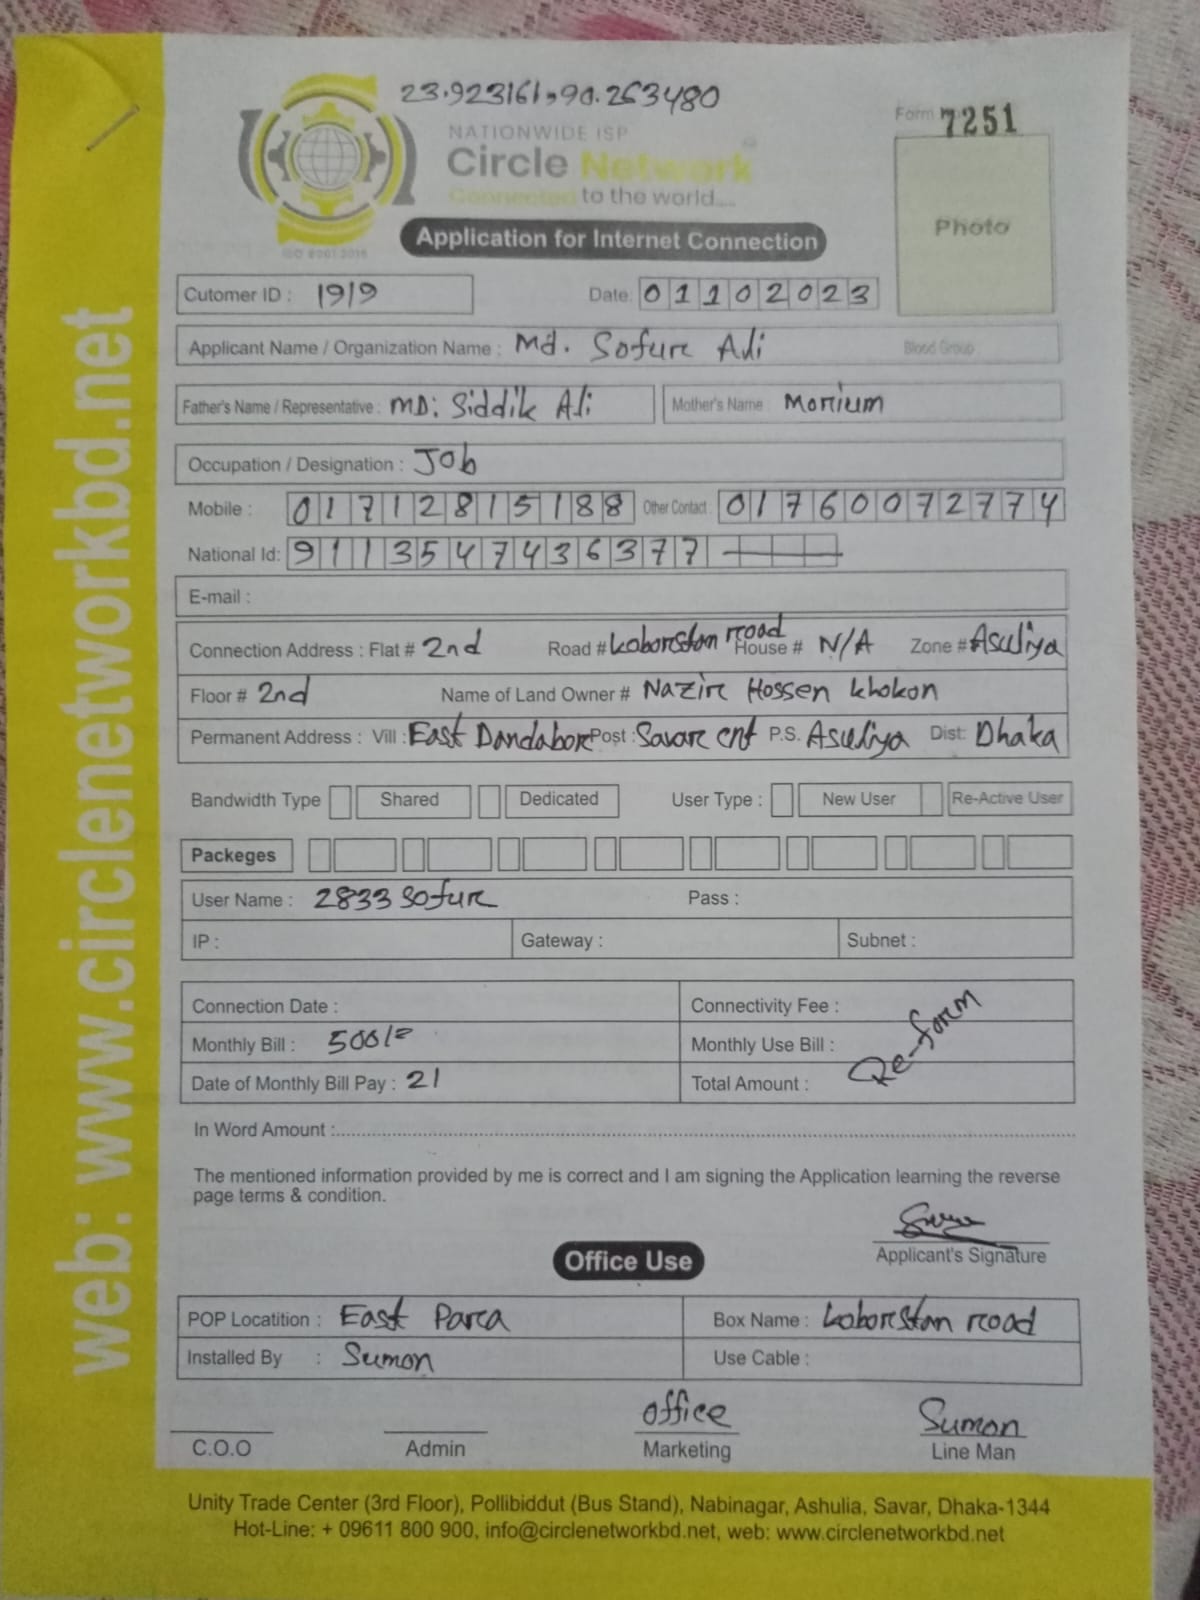 23.923161,90.263480
Form 7251
NATIONWIDE ISP
Circle Network
Connected to the world....
Photo
ISO 9001:2015
Application for Internet Connection
Cutomer ID : 1919 Date: 01102023
Applicant Name / Organization Name : Md. Sofure Ali Blood Group
Father's Name / Representative : MD: Siddik Ali Mother's Name : Morium
Occupation / Designation : Job
Mobile : 01712815188 Other Contact : 01760072774
National Id: 9113547436377
E-mail :
Connection Address : Flat # 2nd Road # koborstan road House # N/A Zone # Asuliya
Floor # 2nd Name of Land Owner # Nazir Hossen khokon
Permanent Address : Vill : East Dandabor Post : Savar cnt P.S. Asuliya Dist: Dhaka
Bandwidth Type Shared Dedicated User Type : New User Re-Active User
Packeges
User Name : 2833 sofur Pass :
IP : Gateway : Subnet :
Connection Date : Connectivity Fee :
Monthly Bill : 500/= Monthly Use Bill :
Re-form
Date of Monthly Bill Pay : 21 Total Amount :
In Word Amount :
The mentioned information provided by me is correct and I am signing the Application learning the reverse
page terms & condition.
Applicant's Signature
Office Use
POP Locatition : East Para Box Name : koborstan road
Installed By : Sumon Use Cable :
office Sumon
C.O.O Admin Marketing Line Man
Unity Trade Center (3rd Floor), Pollibiddut (Bus Stand), Nabinagar, Ashulia, Savar, Dhaka-1344
Hot-Line: + 09611 800 900, info@circlenetworkbd.net, web: www.circlenetworkbd.net
web: www.circlenetworkbd.net